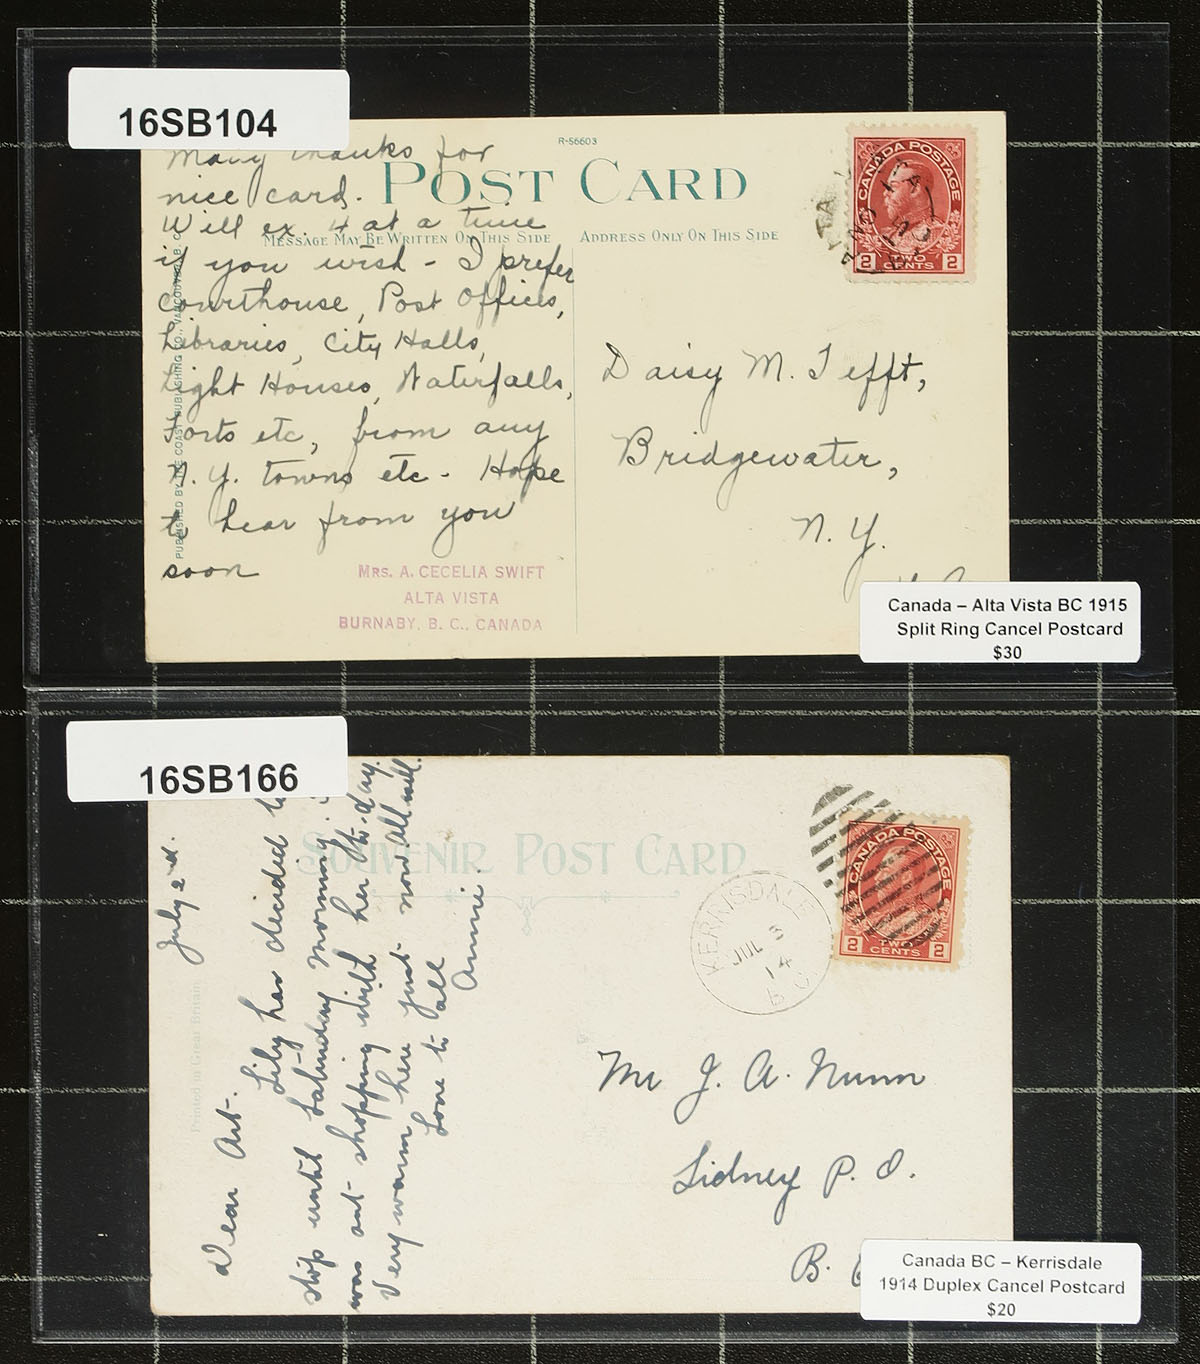 16SB104
R-56603
POST CARD
MESSAGE MAY BE WRITTEN ON THIS SIDE
ADDRESS ONLY ON THIS SIDE
Many thanks for
nice card.
Will ex. 4 at a time
if you wish - I prefer
Courthouse, Post Offices,
Libraries, City Halls,
Light Houses, Waterfalls,
Forts etc, from any
N.Y. towns etc - Hope
to hear from you
soon
PUBLISHED BY THE COAST PUBLISHING CO., VANCOUVER, B.C.
MRS. A. CECELIA SWIFT
ALTA VISTA
BURNABY, B. C., CANADA
CANADA POSTAGE
2 TWO CENTS 2
Daisy M. Tefft,
Bridgewater,
N. Y.
Canada – Alta Vista BC 1915
Split Ring Cancel Postcard
$30
16SB166
SOUVENIR POST CARD
Printed in Great Britain
July 2nd.
Dear Art.
Lily has decided to
stop until Saturday morning.
was out shopping with her to-day.
Very warm here just now all well.
Love to all
Annie.
KERRISDALE
JUL 3
14
B C
CANADA POSTAGE
2 TWO CENTS 2
Mr J. A. Nunn
Sidney P. O.
B.
Canada BC – Kerrisdale
1914 Duplex Cancel Postcard
$20